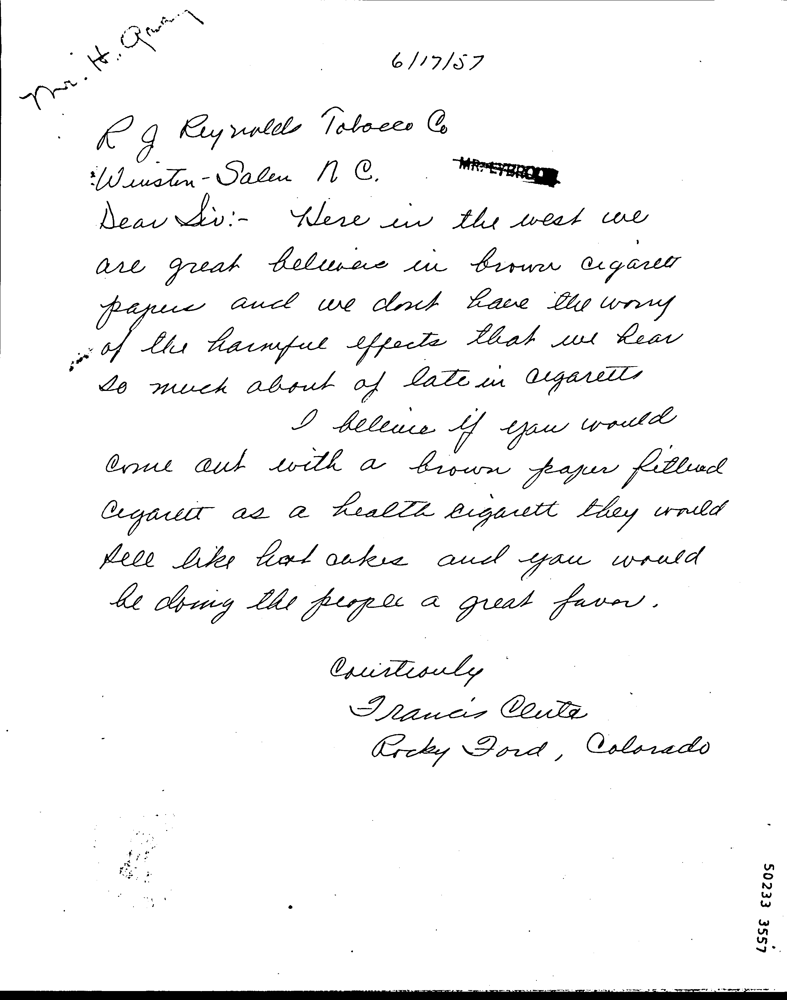 Mr. H. Gray
6/17/57
R J Reynolds Tobacco Co
Winston-Salem N C.
MR. LYBROOK
Dear Sir:- Here in the west we
are great believers in brown cigarett
papers and we dont have the worry
of the harmful effects that we hear
so much about of late in cigaretts
I believe if you would
come out with a brown paper filterd
cigarett as a health cigarett they would
sell like hot cakes and you would
be doing the people a great favor.
Courteously
Francis Clute
Rocky Ford, Colorado
50233 3557